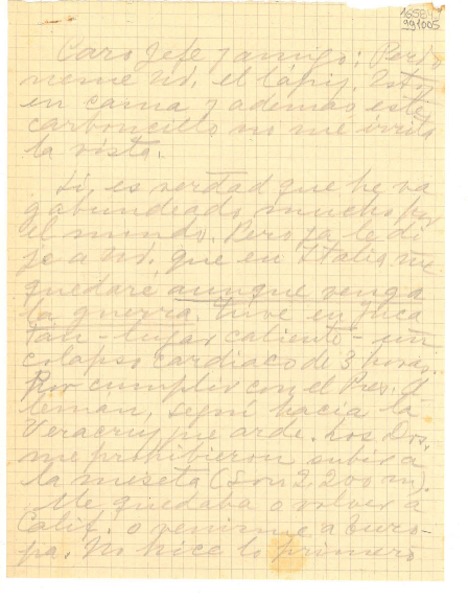 16584
991005
Caro Jefe y amigo: Perdó
neme Ud. el lápiz. Estoy
en cama y además este
carboncillo no me irrita
la vista.
Sí, es verdad que he va
gabundeado mucho por
el mundo. Pero ya le di
je a Ud. que en Italia me
quedaré aunque venga
la guerra. Tuve en Yuca
tán - lugar caliente - un
colapso cardíaco de 3 horas.
Por cumplir con el Pres. A
lemán, seguí hacia la
Veracruz que arde. Los Dos.
me prohibieron subir a
la meseta (son 2,200 m).
Me quedaba o volver a
Calif. o venirme a Euro-
pa. No hice lo primero